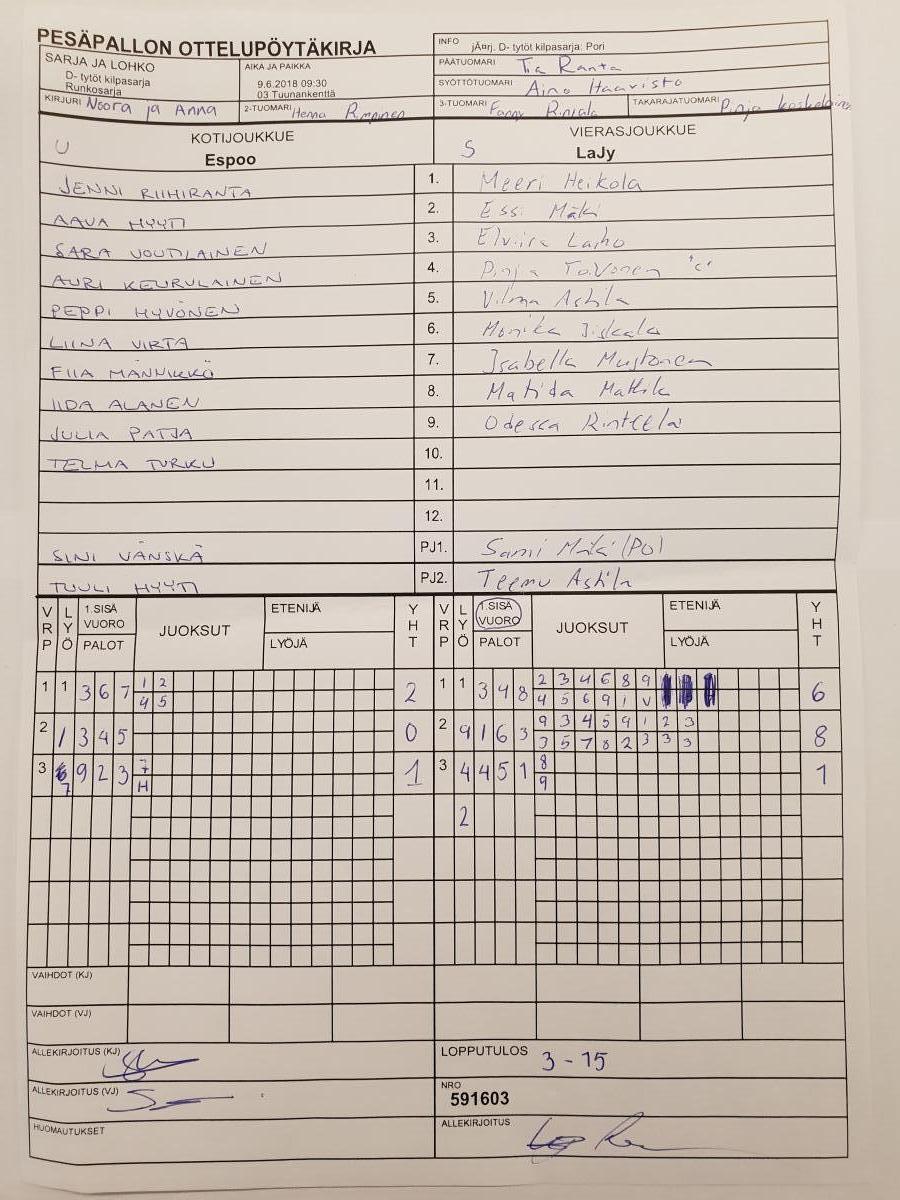 PESÄPALLON OTTELUPÖYTÄKIRJA
INFO jÄ¤rj. D- tytöt kilpasarja: Pori
SARJA JA LOHKO
D- tytöt kilpasarja
Runkosarja
AIKA JA PAIKKA
9.6.2018 09:30
03 Tuunankenttä
PÄÄTUOMARI Tia Ranta
SYÖTTÖTUOMARI Aino Haavisto
KIRJURI Noora ja Anna
2-TUOMARI Henna
3-TUOMARI Fanny
TAKARAJATUOMARI Pinja
U KOTIJOUKKUE
Espoo
S VIERASJOUKKUE
LaJy
JENNI RIIHIRANTA 1. Meeri Heikola
AAVA HYYTI 2. Essi Mäki
SARA VOUTILAINEN 3. Elviira Laiho
AURI KEURULAINEN 4. Pinja Toivonen "c"
PEPPI HYVÖNEN 5. Vilma Astila
LIINA VIRTA 6. Monika
FIIA MÄNNIKKÖ 7. Isabella Mustonen
IIDA ALANEN 8. Matilda Mattila
JULIA PATJA 9. Odessa Rintelä
TELMA TURKU 10.
11.
12.
SINI VÄNSKÄ PJ1. Sami Mäki (PO)
TUULI HYYTI PJ2. Teemu Astila
VRP LYÖ 1.SISÄ VUORO PALOT JUOKSUT ETENIJÄ LYÖJÄ YHT VRP LYÖ 1.SISÄ VUORO PALOT JUOKSUT ETENIJÄ LYÖJÄ YHT
1 1 3 6 7 1 2 2 1 1 3 4 8 2 3 4 6 8 9 6
4 5 4 5 6 9 1 V
2 1 3 4 5 0 2 9 1 6 3 9 3 4 5 9 1 2 3 8
3 5 7 8 2 3 3 3
3 7 9 2 3 7 1 3 4 4 5 1 8 1
H 9
2
VAIHDOT (KJ)
VAIHDOT (VJ)
ALLEKIRJOITUS (KJ)
LOPPUTULOS 3 - 15
ALLEKIRJOITUS (VJ)
NRO
591603
HUOMAUTUKSET
ALLEKIRJOITUS